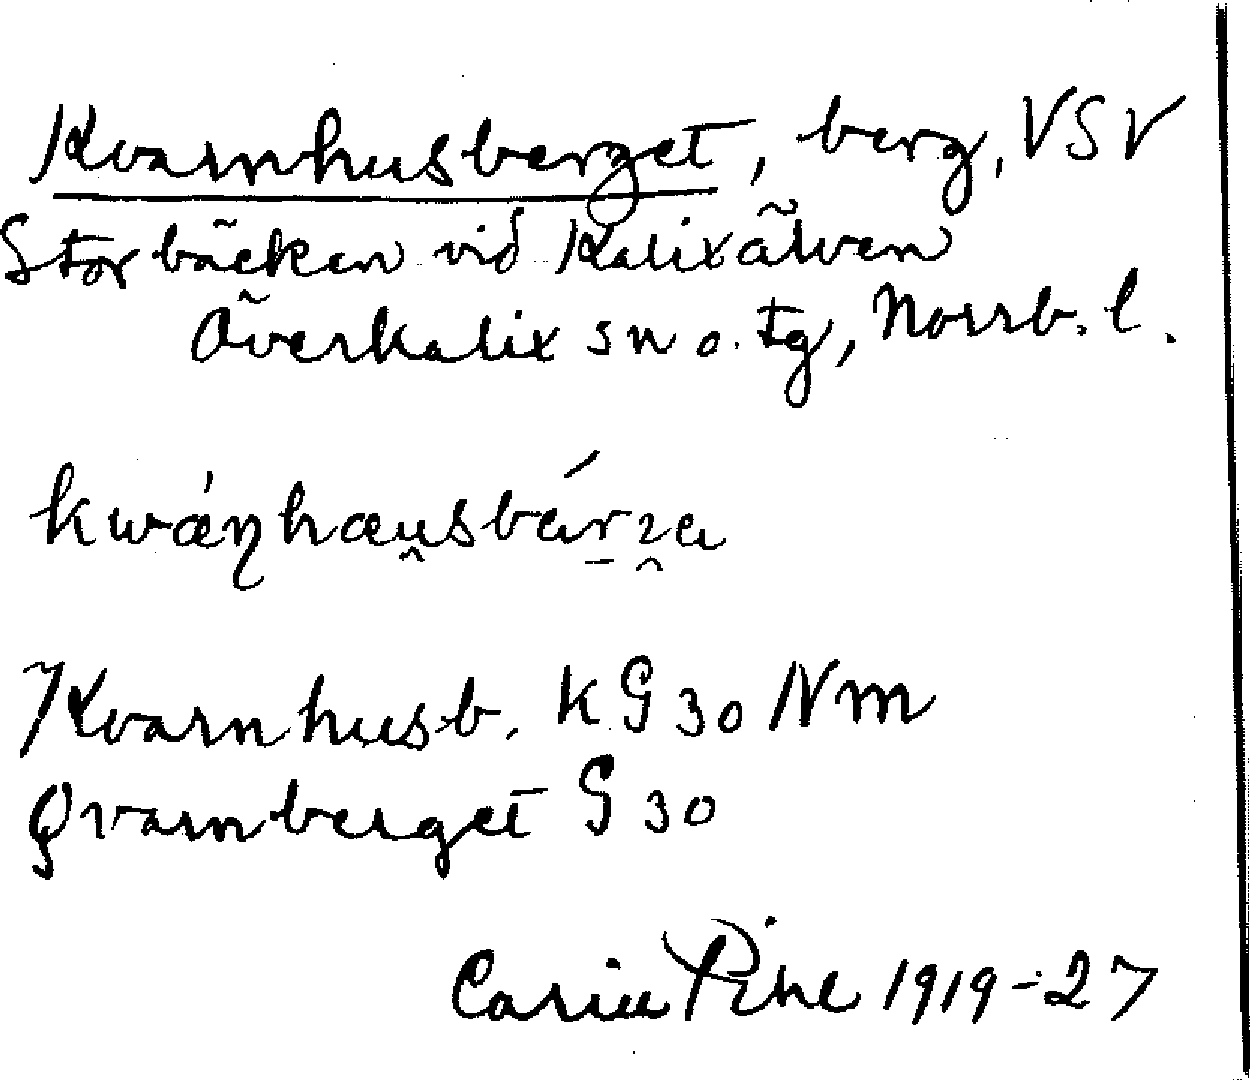 Kvarnhusberget, berg, VSV
Storbäcken vid Kalixälven
Överkalix sn o. tg, Norrb. l.
Kvarnhusb. KG 30 Nm
Qvarnberget G 30
Carin Pihl 1919-27